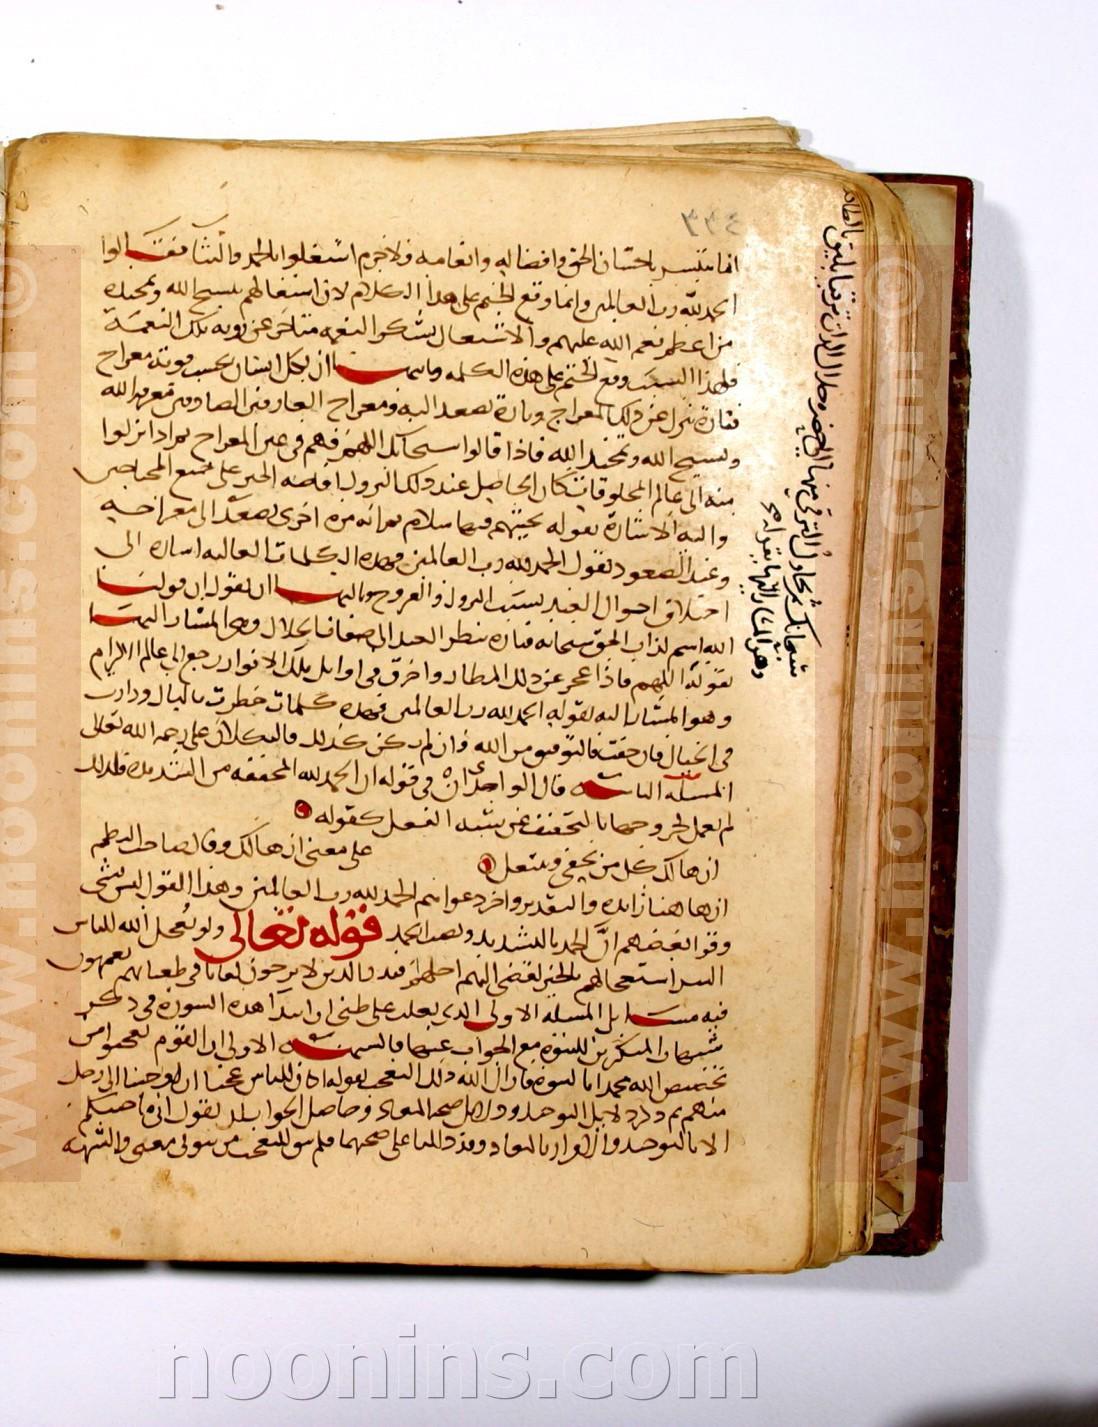 انما تيسر باحسان الحق وافضاله وانعامه فلا جرم اشتغلوا بالحمد والثنا فقالوا
الحمد لله رب العالمين وانما وقع الختم على هذا الكلام لان اشتغالهم بتسبيح الله وتمجيده
من اعظم نعم الله عليهم والاشتغال بشكر النعمه متاخر عن رويه تلك النعمة
فلهذا السبب وقع الختم على هذه الكلمه ان لكل انسان بحسب قوته معراج
فتارة ينزل عن ذلك المعراج وتارة يصعد اليه ومعراج العارفين الصادقين معرفه الله
وتسبيح الله وتحميد الله فاذا قالوا سبحانك اللهم فهم في عين المعراج ثم اذا نزلوا
منه الى عالم المخلوقات كان الحاصل عند ذلك النزول افاضه الخير على جميع المحتاجين
واليه الاشارة بقوله تحيتهم فيها سلام ثم انه مره اخرى يصعد الى معراجه
وعند الصعود يقول الحمد لله رب العالمين فهذه الكلمات العاليه اشاره الى
اختلاف احوال العبد بسبب النزول والعروج ان نقول ان قولنا
الله اسم لذات الحق سبحانه فتارة ينظر العبد الى صفات الجلال وهى المشار اليها
بقوله اللهم فاذا عجز عن ذلك المطار واخترق في اوايل تلك الانوار رجع الى عالم الاكرام
وهو المشار اليه بقوله الحمد لله رب العالمين فهذه كلمات خطرت بالبال ودارت
في الخيال فان حقت فالتوفيق من الله وان لم يكن كذلك فالتكلان على رحمه الله تعالى
المسله قال الواحدى ان في قوله ان الحمد لله المخففه من الشديده فلذلك
لم تعمل لخروجها بالتخفيف عن شبه الفعل كقوله
ان هالك كل من يحفى وينتعل
على معنى انه هالك وقال صاحب النظم
ان ها هنا زايده والتقدير واخر دعواهم الحمد لله رب العالمين وهذا القول ليس بشى
وقرا بعضهم انّ الحمد بالتشديد ونصب الحمد قوله تعالى ولو يعجل الله للناس
الشر استعجالهم بالخير لقضى اليهم اجلهم فنذر الذين لا يرجون لقانا في طغيانهم يعمهون
فيه مسايل المسله الاولى الذى يغلب على ظنى ان ابتدا هذه السورة في ذكر
شبهات المنكرين للنبوه مع الجواب عنها فالشبهه الاولى ان القوم تعجبوا من
تخصيص الله محمدا بالنبوه فازال الله ذلك التعجب بقوله اكان للناس عجبا ان اوحينا الى رجل
منهم ثم ذكر دلايل التوحيد ودلايل صحه المعاد وحاصل الجواب انه يقول انى ما جيتكم
الا بالتوحيد والاقرار بالمعاد وقد دللنا على صحتهما فلم يبق للتعجب من نبوتى معنى والشبهه
سبحانك ثم يحاول الترقي منها الى
وهو المشار اليها بقوله
noonins.com
www.noonins.com ©
www.noonins.com ©